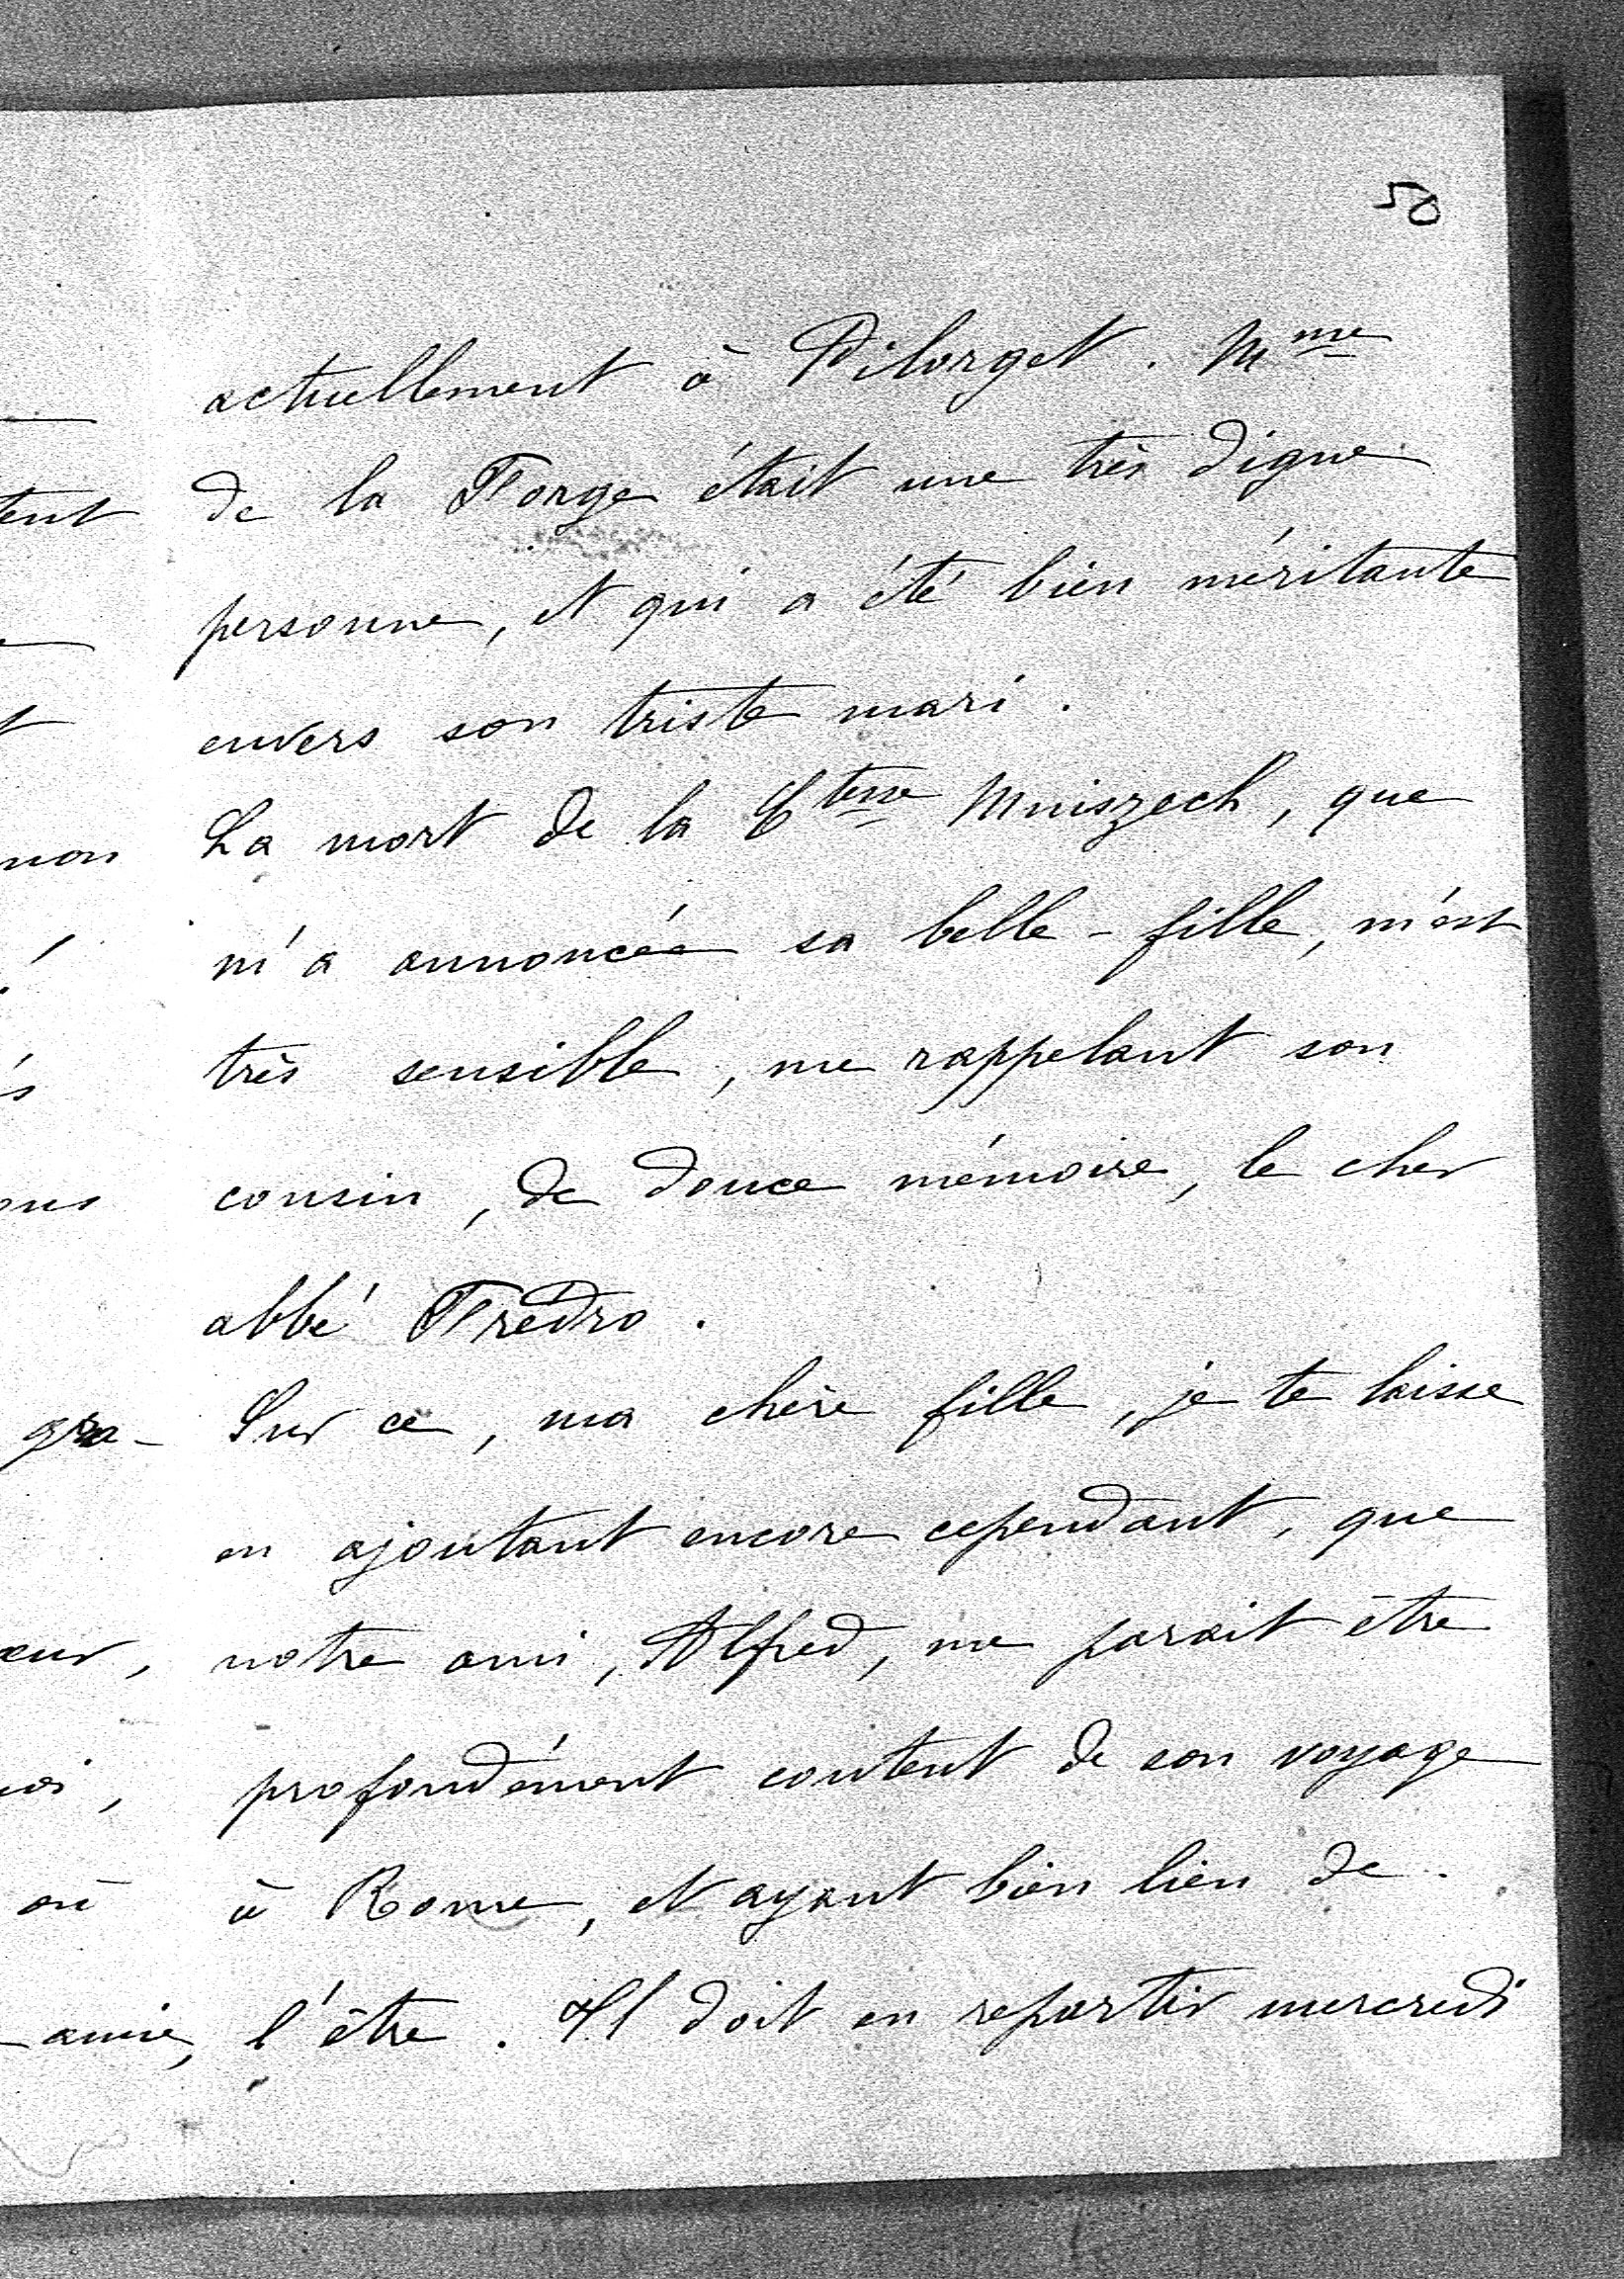 50
actuellement à Pilorget. Mme
de la Forge était une très digne
personne, et qui a été bien méritante
envers son triste mari.
La mort de la Ctesse Mniszech, que
m'a annoncée sa belle-fille, m'est
très sensible, me rappelant son
cousin, de douce mémoire, le cher
abbé Frédro.
Sur ce, ma chère fille, je te laisse
en ajoutant encore cependant, que
notre ami, Alfred, me parait être
profondément content de son voyage
à Rome, et ayant bien lieu de
l'être. Il doit en repartir mercredi